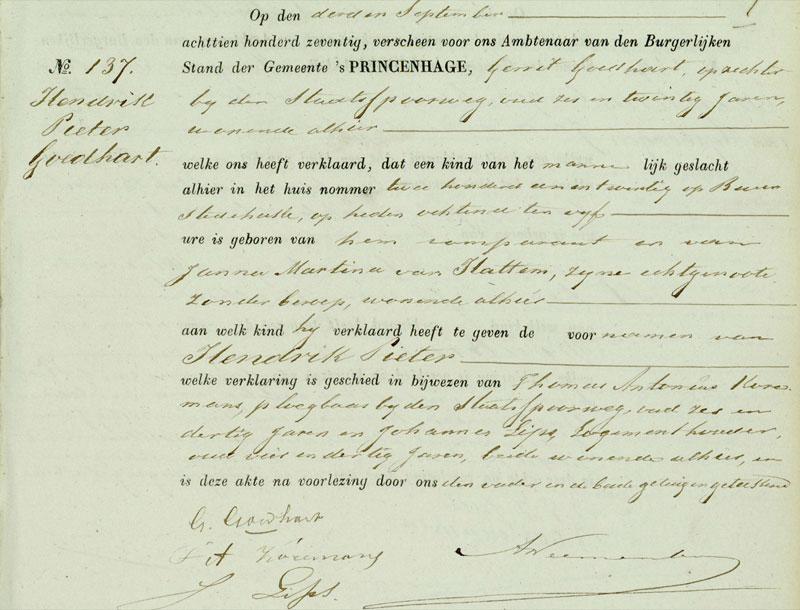 Op den derden September
achttien honderd zeventig, verscheen voor ons Ambtenaar van den Burgerlijken
No. 137.
Stand der Gemeente 's PRINCENHAGE, Gerrit Goedhart, opzichter
Hendrik
Pieter
Goedhart.
by den Staatsspoorweg, oud zes en twintig Jaren,
wonende alhier
welke ons heeft verklaard, dat een kind van het manne lijk geslacht
alhier in het huis nommer twee honderd een en twintig op
op heden ochtend ten vyf
ure is geboren van hem comparant en van
Janna Martina van Hattem, zyne echtgenoote
zonder beroep, wonende alhier
aan welk kind hy verklaard heeft te geven de voor namen van
Hendrik Pieter
welke verklaring is geschied in bijwezen van Thomas Antonius Kore
mans, ploegbaas by den Staatsspoorweg, oud zes en
dertig Jaren en Johannes Lips, Logementhouder,
oud vier en dertig Jaren, beide wonende alhier, en
is deze akte na voorlezing door ons den vader en de beide getuigen geteekend
G. Goedhart
Koremans
J Lips.